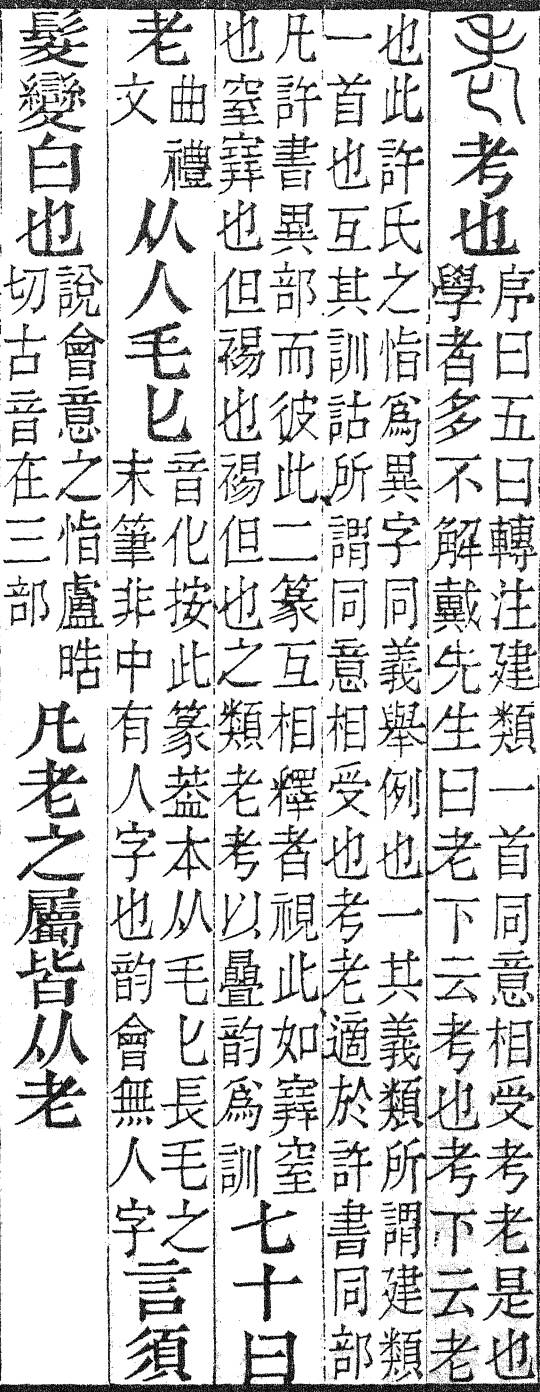 考也
序曰五曰轉注建類一首同意相受考老是也
學者多不解戴先生曰老下云考也考下云老
也此許氏之恉爲異字同義舉例也一其義類所謂建類
一首也互其訓詁所謂同意相受也考老適於許書同部
凡許書異部而彼此二篆互相釋者視此如𡫳窒
也窒𡫳也但裼也裼但也之類老考以曡韵爲訓
七十曰
老
曲禮
文
从人毛匕
音化按此篆葢本从毛匕長毛之
末筆非中有人字也韵會無人字
言須
髮變白也
說會意之恉盧晧
切古音在三部
凡老之屬皆从老